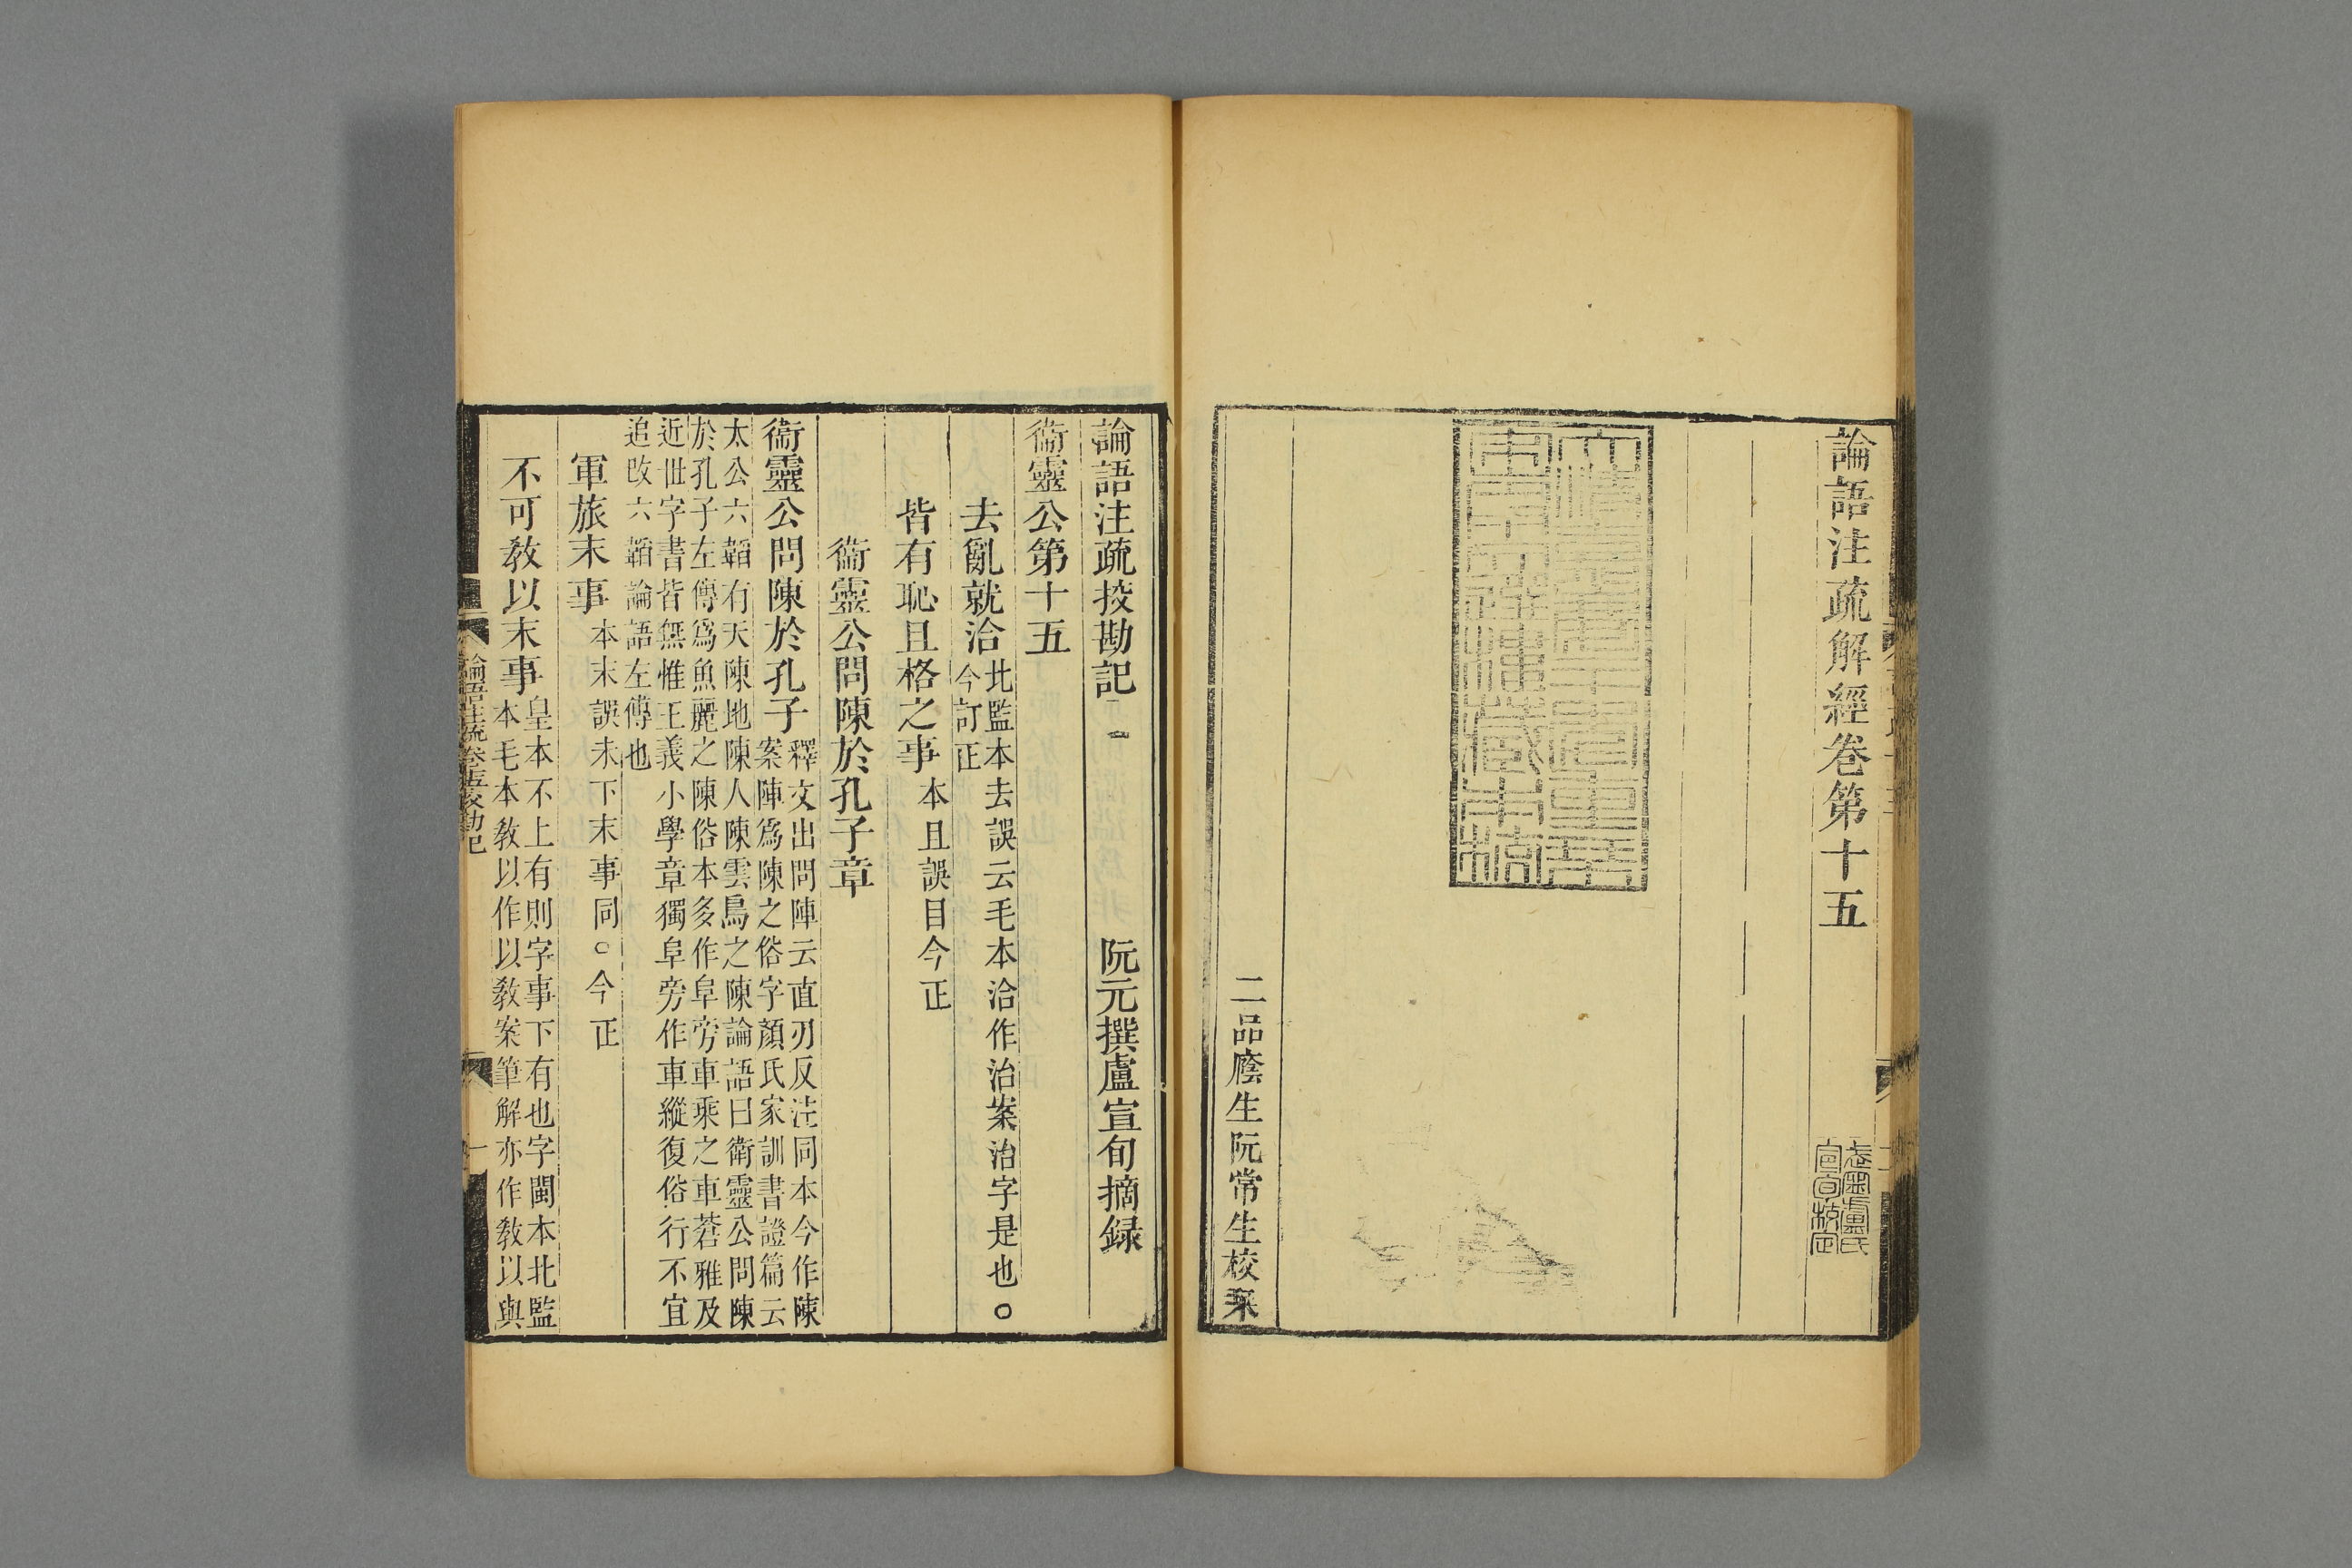 論語注疏解經卷第十五
二品廕生阮常生校栞
論語注疏挍勘記 阮元撰盧宣旬摘録
衞靈公第十五
去亂就洽 北監本去誤云毛本洽作治案治字是也○
今訂正
皆有恥且格之事 本且誤目今正
衞靈公問陳於孔子章
衞靈公問陳於孔子 釋文出問陣云直刃反注同本今作陳
案陣爲陳之俗字顏氏家訓書證篇云
太公六韜有天陳地陳人陳雲鳥之陳論語曰衛靈公問陳
於孔子左傳爲魚麗之陳俗本多作阜旁車乘之車蒼雅及
近世字書皆無惟王義小學章獨阜旁作車縱復俗行不宜
追改六韜論語左傳也
軍旅末事 本末誤未下末事同○今正
不可教以末事 皇本不上有則字事下有也字閩本北監
本毛本教以作以教案筆解亦作教以與
論語注疏卷十五校勘記
一